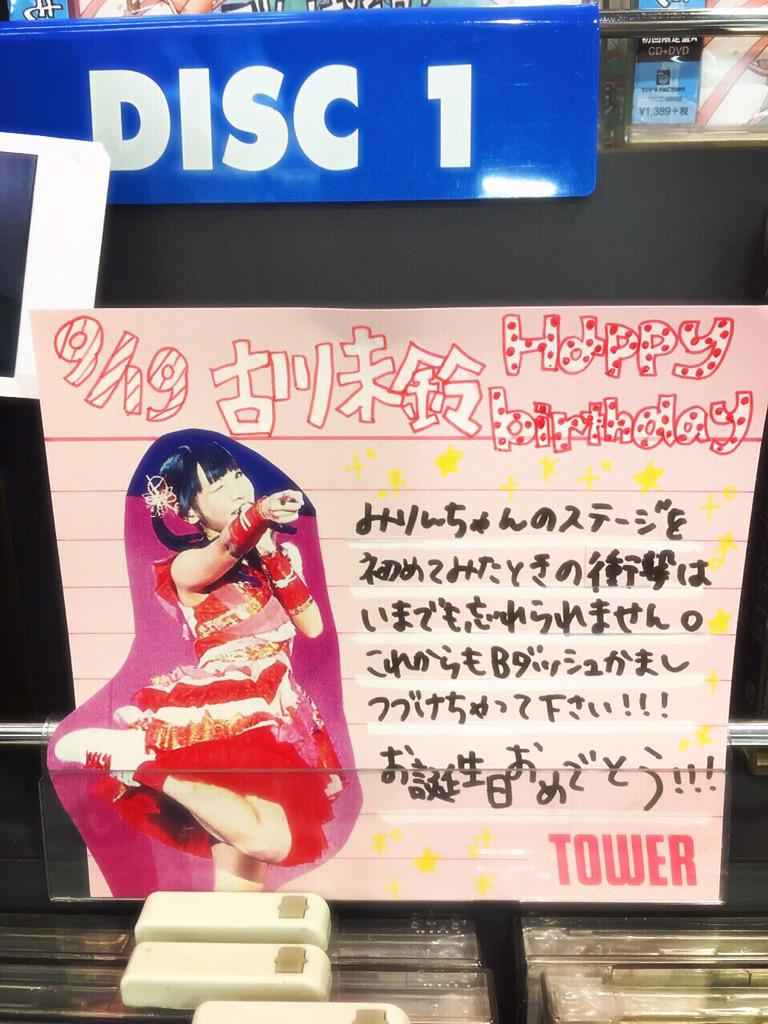 初回限定盤A
CD+DVD
TOY'S FACTORY
¥1,389+税
DISC 1
9/19 古川未鈴 Happy birthday
みりんちゃんのステージを
初めてみたときの衝撃は
いまでも忘れられません。
これからもBダッシュかまし
つづけちゃって下さい!!!
お誕生日おめでとう!!!
TOWER